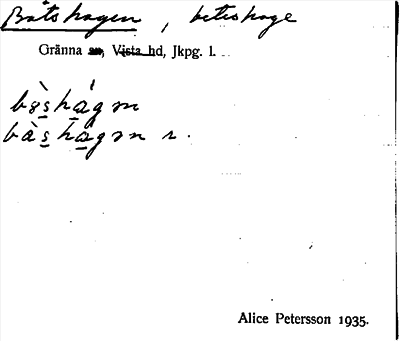 Båtshagen, beteshage
Gränna sn, Vista hd, Jkpg. l.
bòshágən
bàshágən r.
Alice Petersson 1935.